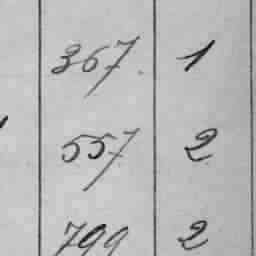 367. 1
557 2
799 2